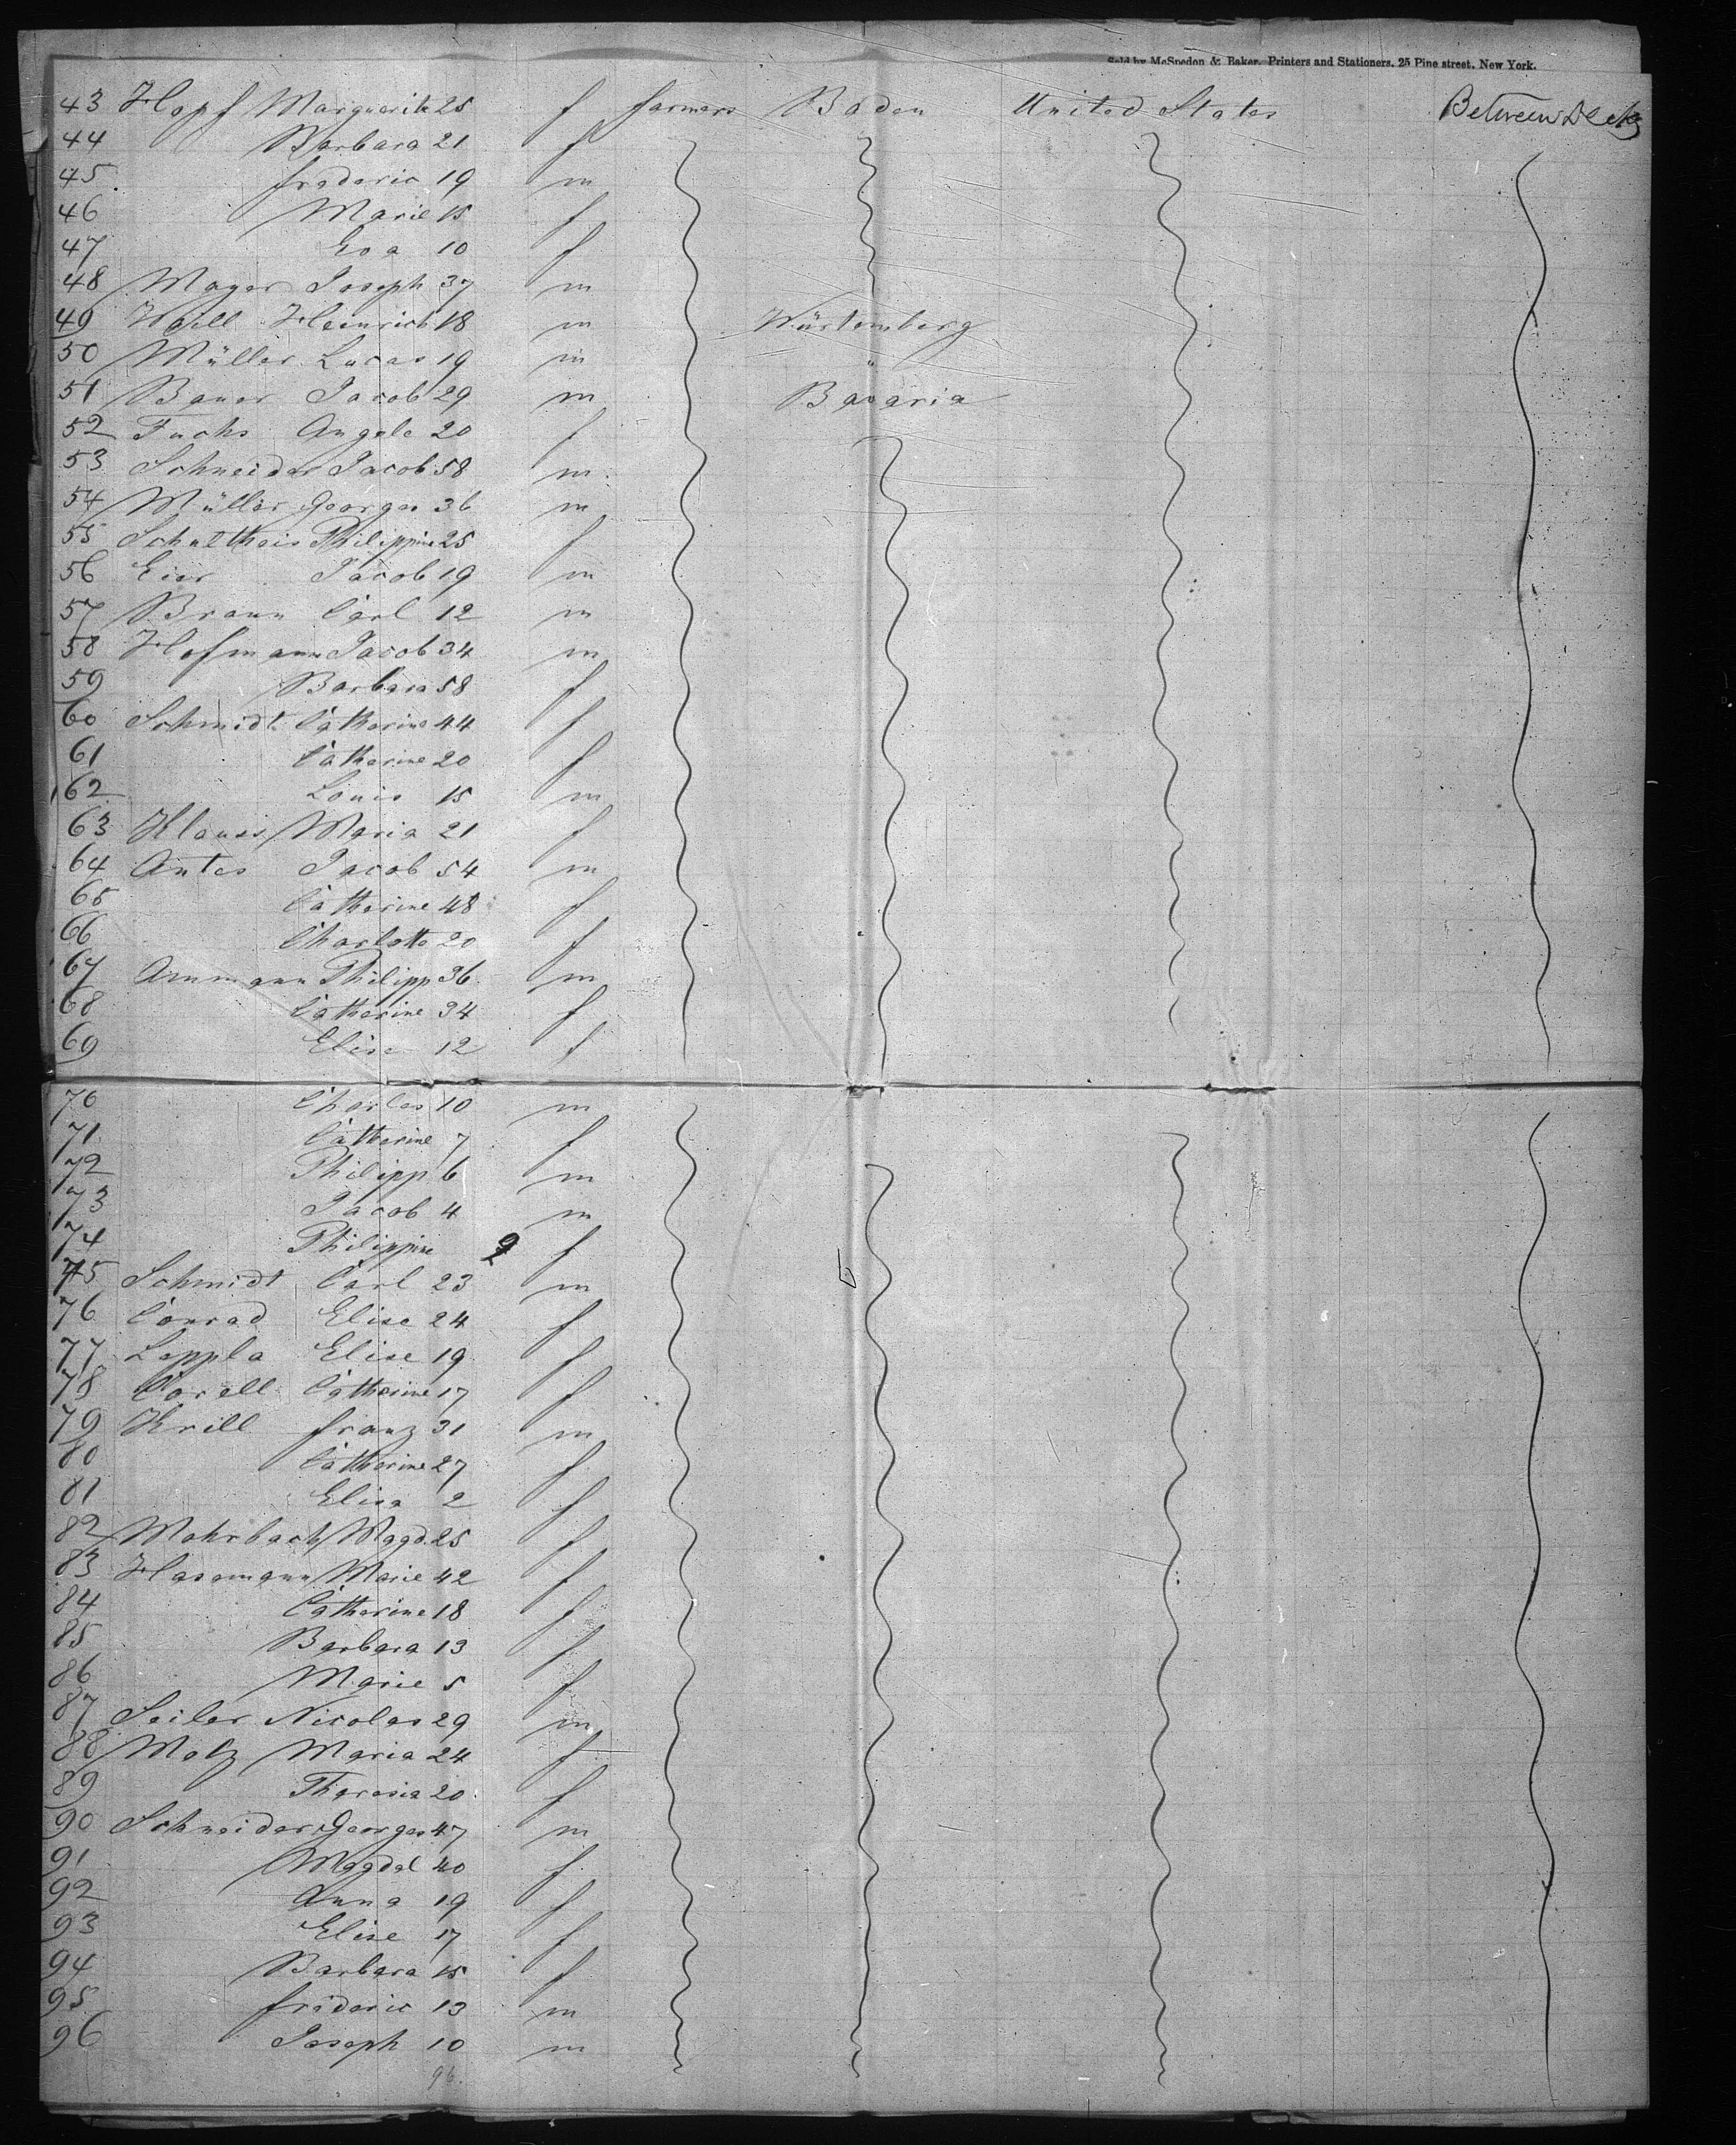 Sold by McSpedon & Baker, Printers and Stationers, 25 Pine street, New York.
43 Hopf Marguerite 25 f farmers Baden United States Between Deck
44 Barbara 21 f
45 frederic 19 m
46 Marie 15 f
47 Eva 10 f
48 Mayer Joseph 37 m
49 Heinrich 18 m Würtemberg
50 Müller Lucas 19 m "
51 Bauer Jacob 29 m Bavaria
52 Fuchs Angele 20 f
53 Schneider Jacob 58 m
54 Müller Georges 36 m
55 Schultheis Philippine 25 f
56 Jacob 19 m
57 Braun Carl 12 m
58 Hofmann Jacob 34 m
59 Barbara 58 f
60 Schmidt Catharine 44 f
61 Catharine 20 f
62 Louis 15 m
63 Klauss Maria 21 f
64 Antes Jacob 54 m
65 Catherine 48 f
66 Charlotte 20 f
67 Ammann Philipp 36 m
68 Catherine 34 f
69 Elise 12 f
70 Charles 10 m
71 Catherine 7 f
72 Philipp 6 m
73 Jacob 4 m
74 Philippine f
75 Schmidt Carl 23 m
76 Conrad Elise 24 f
77 Leppla Elise 19 f
78 Corell Catherine 17 f
79 Krill franz 31 m
80 Catherine 27 f
81 Elisa 2 f
82 Mohrbach Magd. 25 f
83 Hasemann Marie 42 f
84 Catherine 18 f
85 Barbara 13 f
86 Marie 5 f
87 Seiler Nicolas 29 m
88 Motz Maria 24 f
89 Theresia 20 f
90 Schneider Georges 47 m
91 Magdal 40 f
92 Anna 19 f
93 Elise 17 f
94 Barbara 15 f
95 frederic 13 m
96 Joseph 10 m
96.